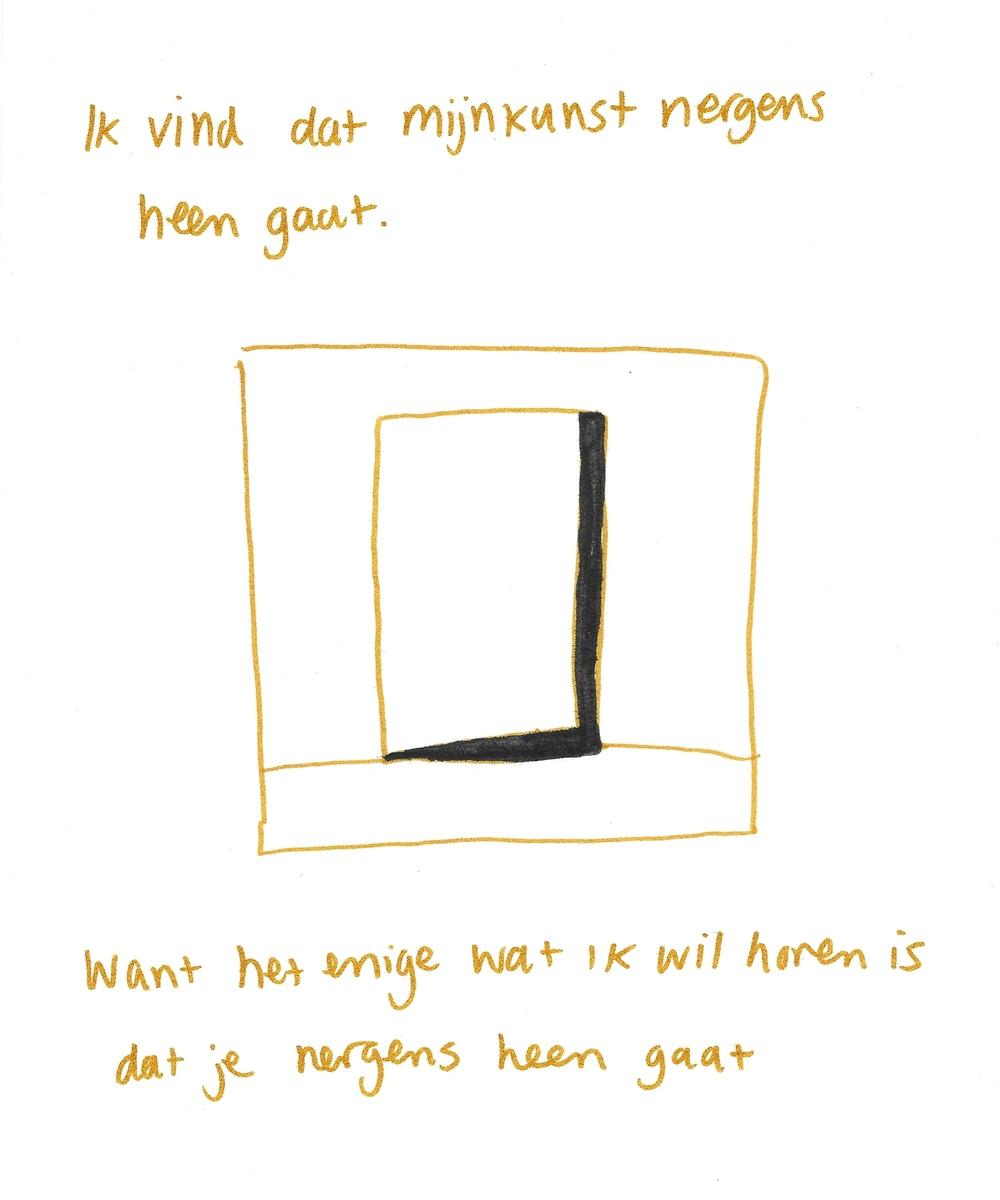 Ik vind dat mijn kunst nergens
heen gaat.
Want het enige wat ik wil horen is
dat je nergens heen gaat